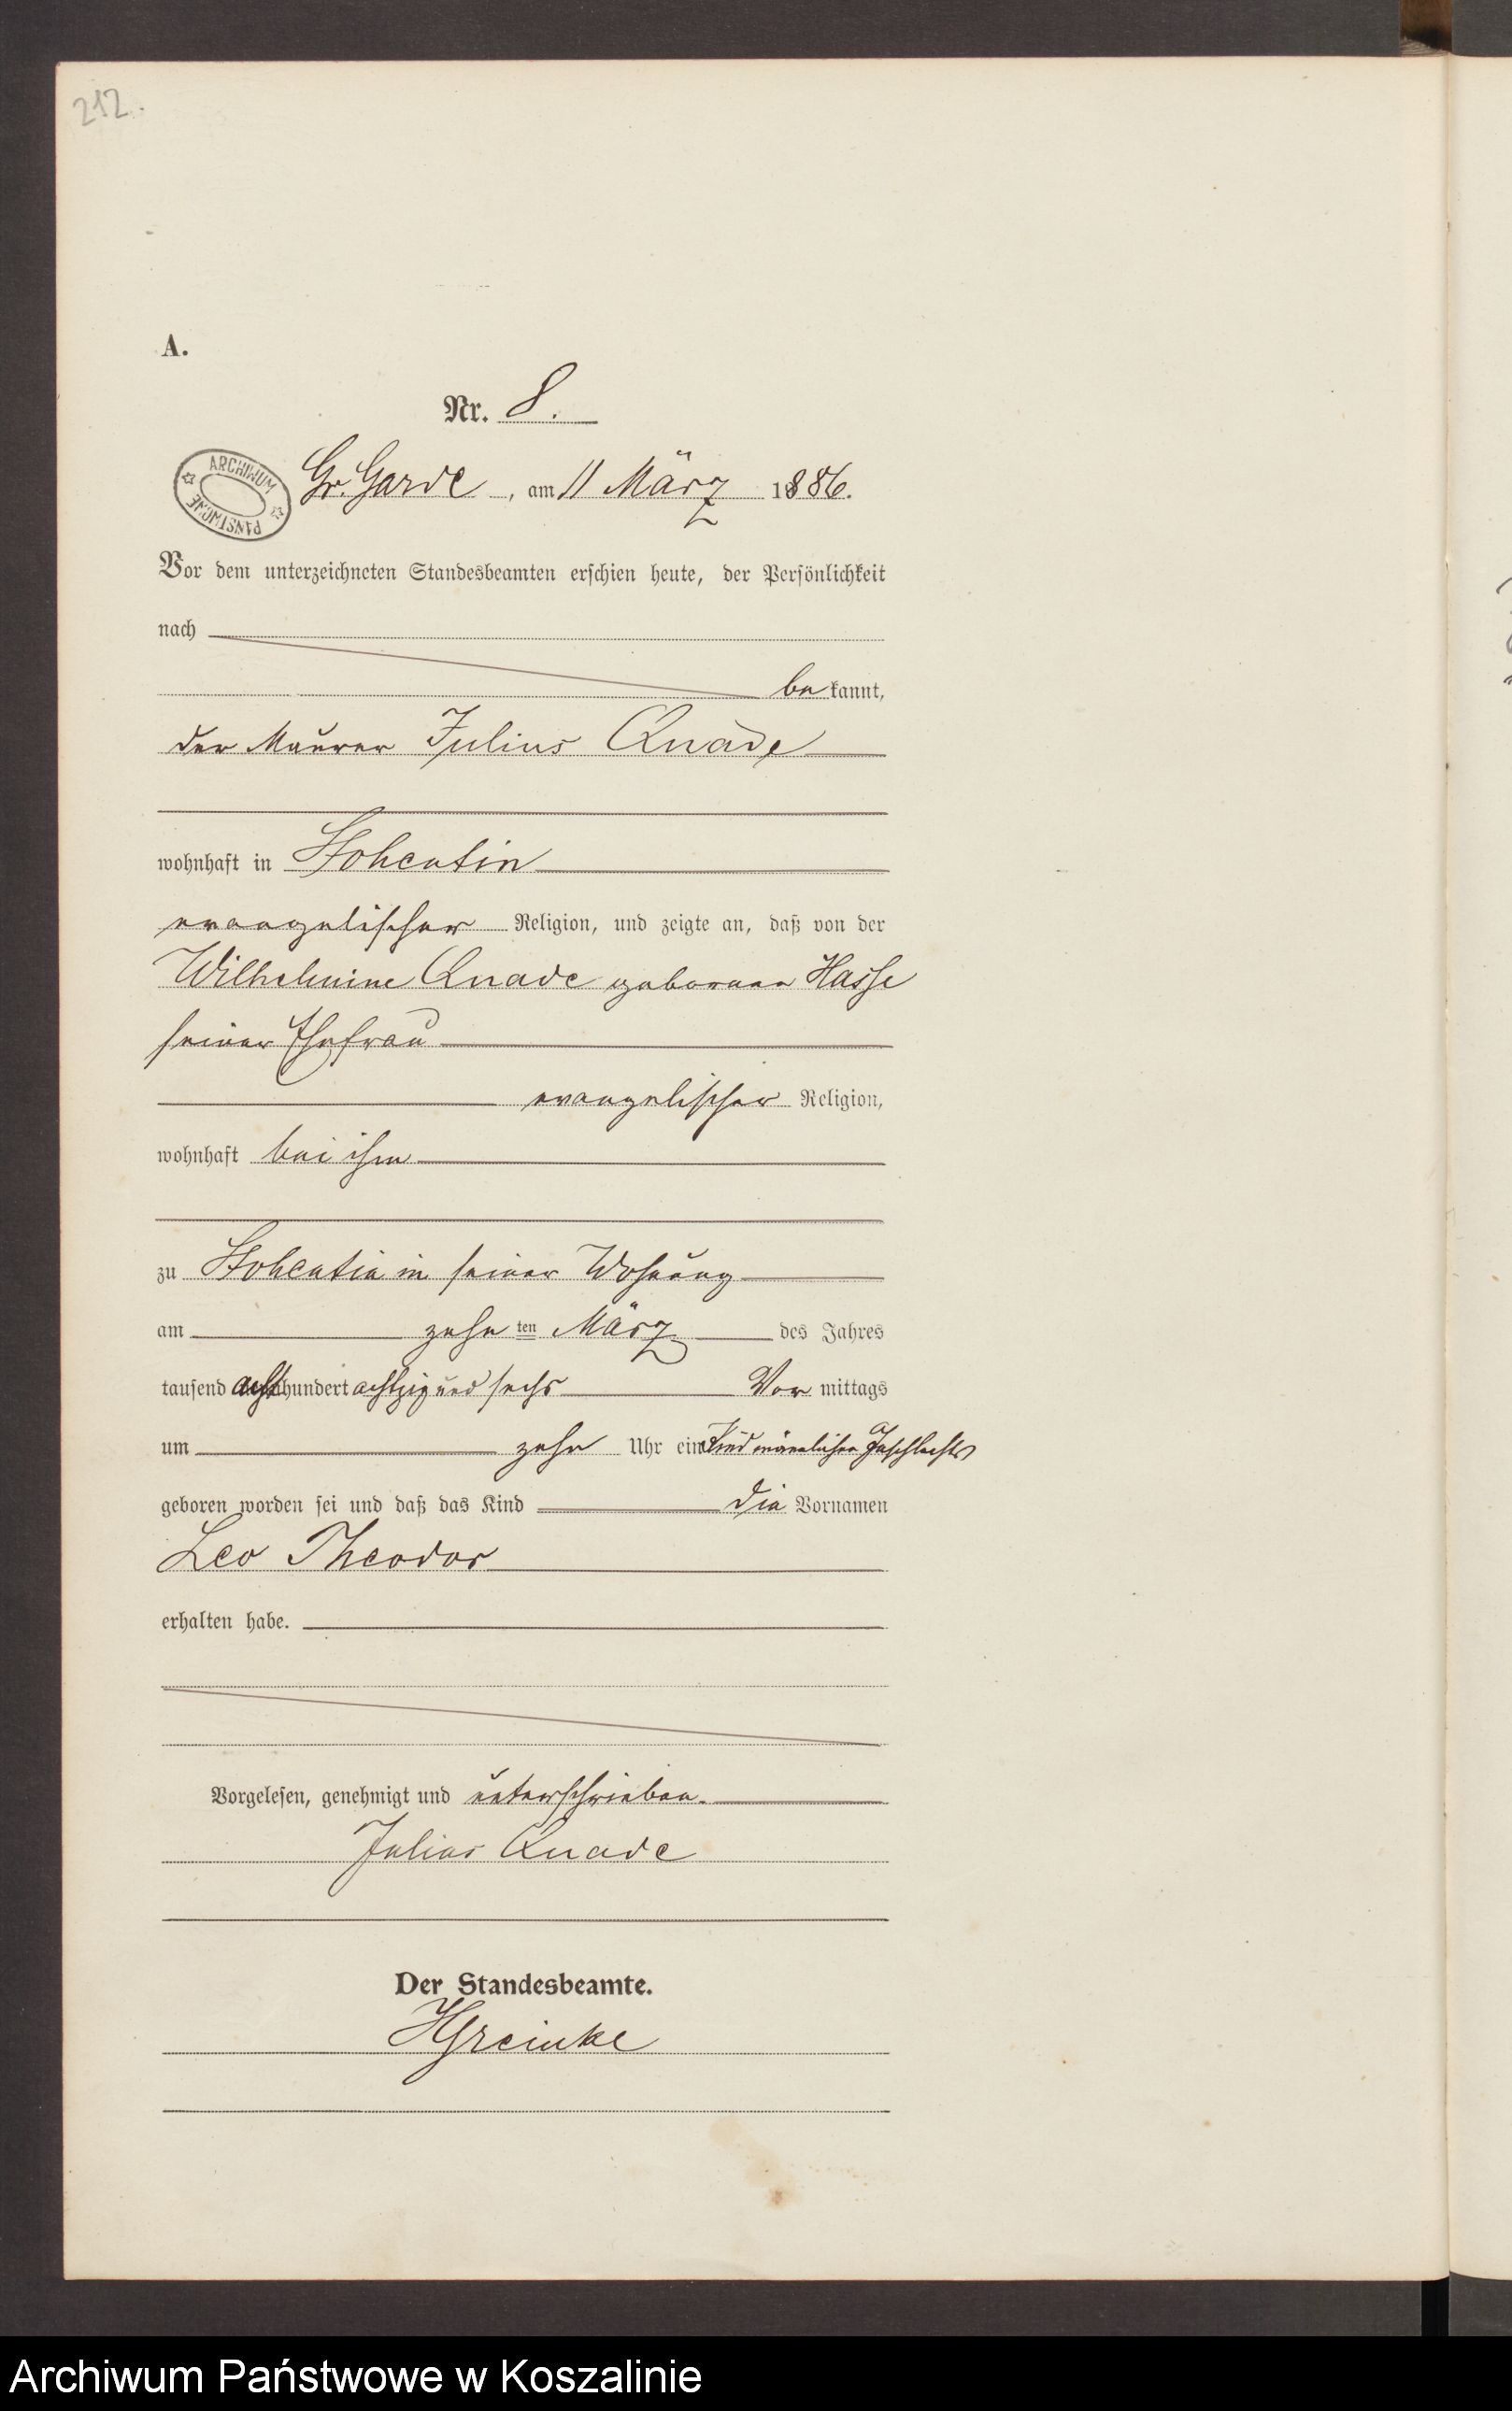 212.
A.
Nr. 8.
ARCHIWUM
PAŃSTWOWE
Gr. Garde, am 11 März 1886.
Vor dem unterzeichneten Standesbeamten erschien heute, der Persönlichkeit
nach
be kannt,
der Maurer Julius Quade
wohnhaft in Stohentin
evangelischer Religion, und zeigte an, daß von der
Wilhelmine Quade geborenen Hasse
seiner Ehefrau
evangelischer Religion,
wohnhaft bei ihm
zu Stohentin in seiner Wohnung
am zehn ten März des Jahres
tausend acht hundert achtzig und sechs Vor mittags
um zehn Uhr ein Kind männlichen Geschlechts
geboren worden sei und daß das Kind die Vornamen
Leo Theodor
erhalten habe.
Vorgelesen, genehmigt und unterschrieben.
Julius Quade
Der Standesbeamte.
Archiwum Państwowe w Koszalinie